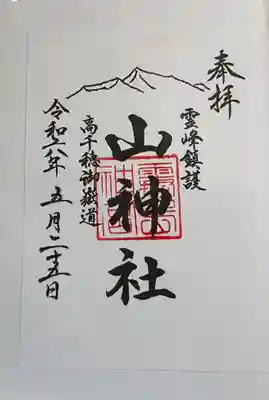 奉拝
霊峰鎮護
山神社
高千穂御嶽道
令和六年 五月二十五日